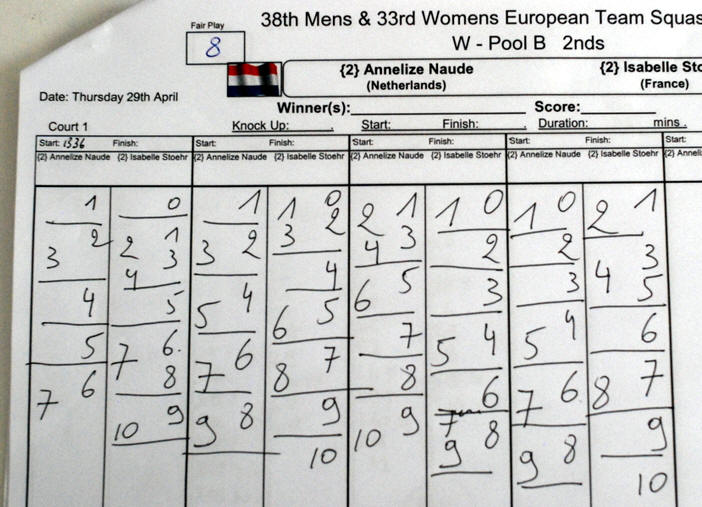 Fair Play
8
38th Mens & 33rd Womens European Team Squas
W - Pool B 2nds
{2} Annelize Naude {2} Isabelle Sto
(Netherlands) (France)
Date: Thursday 29th April
Winner(s): Score:
Court 1 Knock Up: Start: Finish: Duration: mins.
Start: 1336 Finish: Start: Finish: Start: Finish: Start: Finish: Start:
{2} Annelize Naude {2} Isabelle Stoehr {2} Annelize Naude {2} Isabelle Stoehr {2} Annelize Naude {2} Isabelle Stoehr {2} Annelize Naude {2} Isabelle Stoehr {2} Anneli
1
3 2
4
5
7 6
0
2 1
4 3
5
7 6
8
10 9
1
3 2
5 4
7 6
9 8
1 0
3 2
4
6 5
8 7
9
10
2 1
4 3
6 5
7
8
10 9
1 0
2
3
5 4
6
7
9 8
1 0
2
3
5 4
7 6
9 8
2 1
3
4 5
6
8 7
9
10